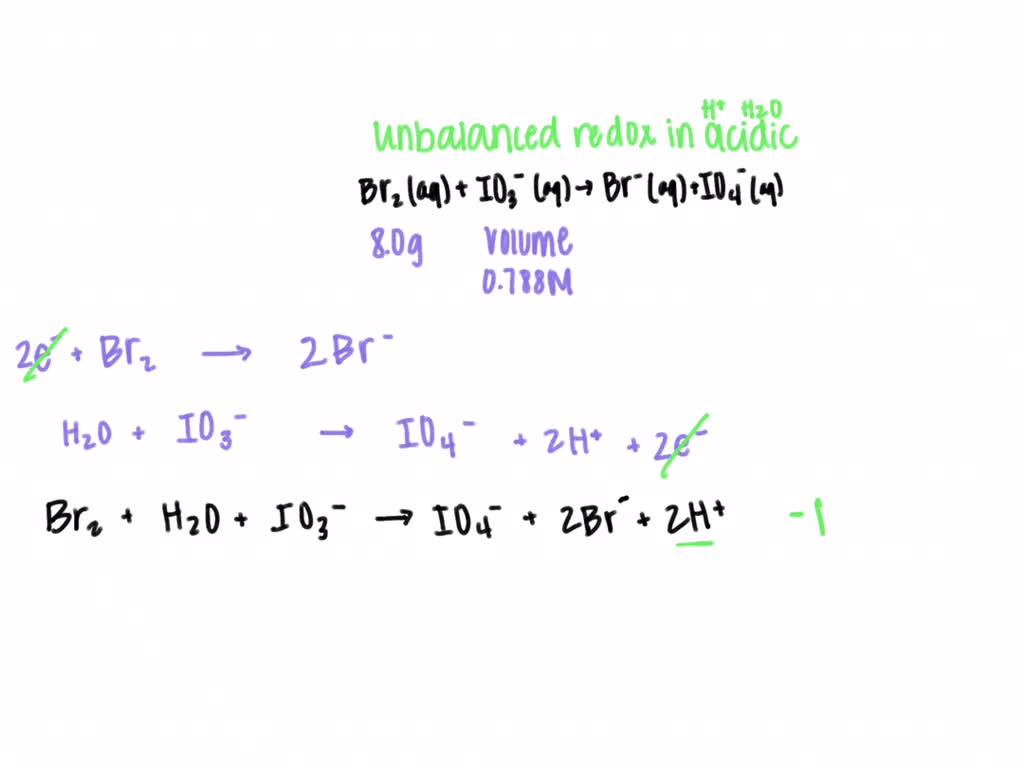 H⁺ H₂O
Unbalanced redox in acidic
Br₂(aq) + IO₃⁻(aq) → Br⁻(aq) + IO₄⁻(aq)
8.0g volume
0.788M
2e⁻ + Br₂ → 2Br⁻
H₂O + IO₃⁻ → IO₄⁻ + 2H⁺ + 2e⁻
Br₂ + H₂O + IO₃⁻ → IO₄⁻ + 2Br⁻ + 2H⁺ -1